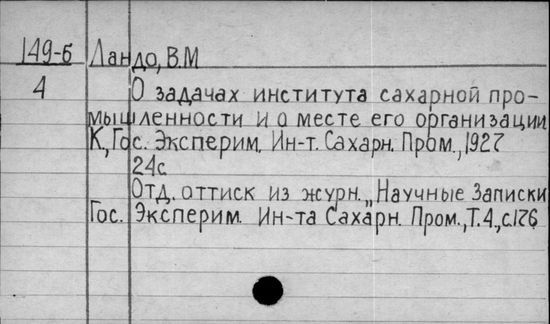 149-б Ландо, В.М
4 О задачах института сахарной про-
мышленности и о месте его организации
К, Гос. Эксперим. Ин-т. Сахарн. Пром., 1927
24с
Отд. оттиск из журн. „Научные Записки
Гос. Эксперим. Ин-та Сахарн. Пром., Т.4., с.176